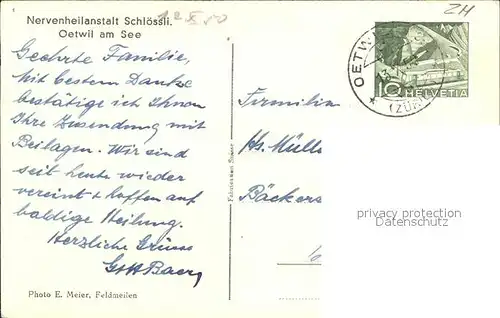 Nervenheilanstalt Schlössli.
Oetwil am See
12 X 50
ZH
OETW
(ZÜR
10 HELVETIA
Geehrte Familie,
Mit bestem Danke
bestätige ich Ihnen
Ihre Zusendung mit
Beilagen. Wir sind
seit heute wieder
vereint & hoffen auf
baldige Heilung.
Herzliche Grüsse
Baer
Photo E. Meier, Feldmeilen
Familie
Hs. Müll
Bäckers
privacy protection
Datenschutz